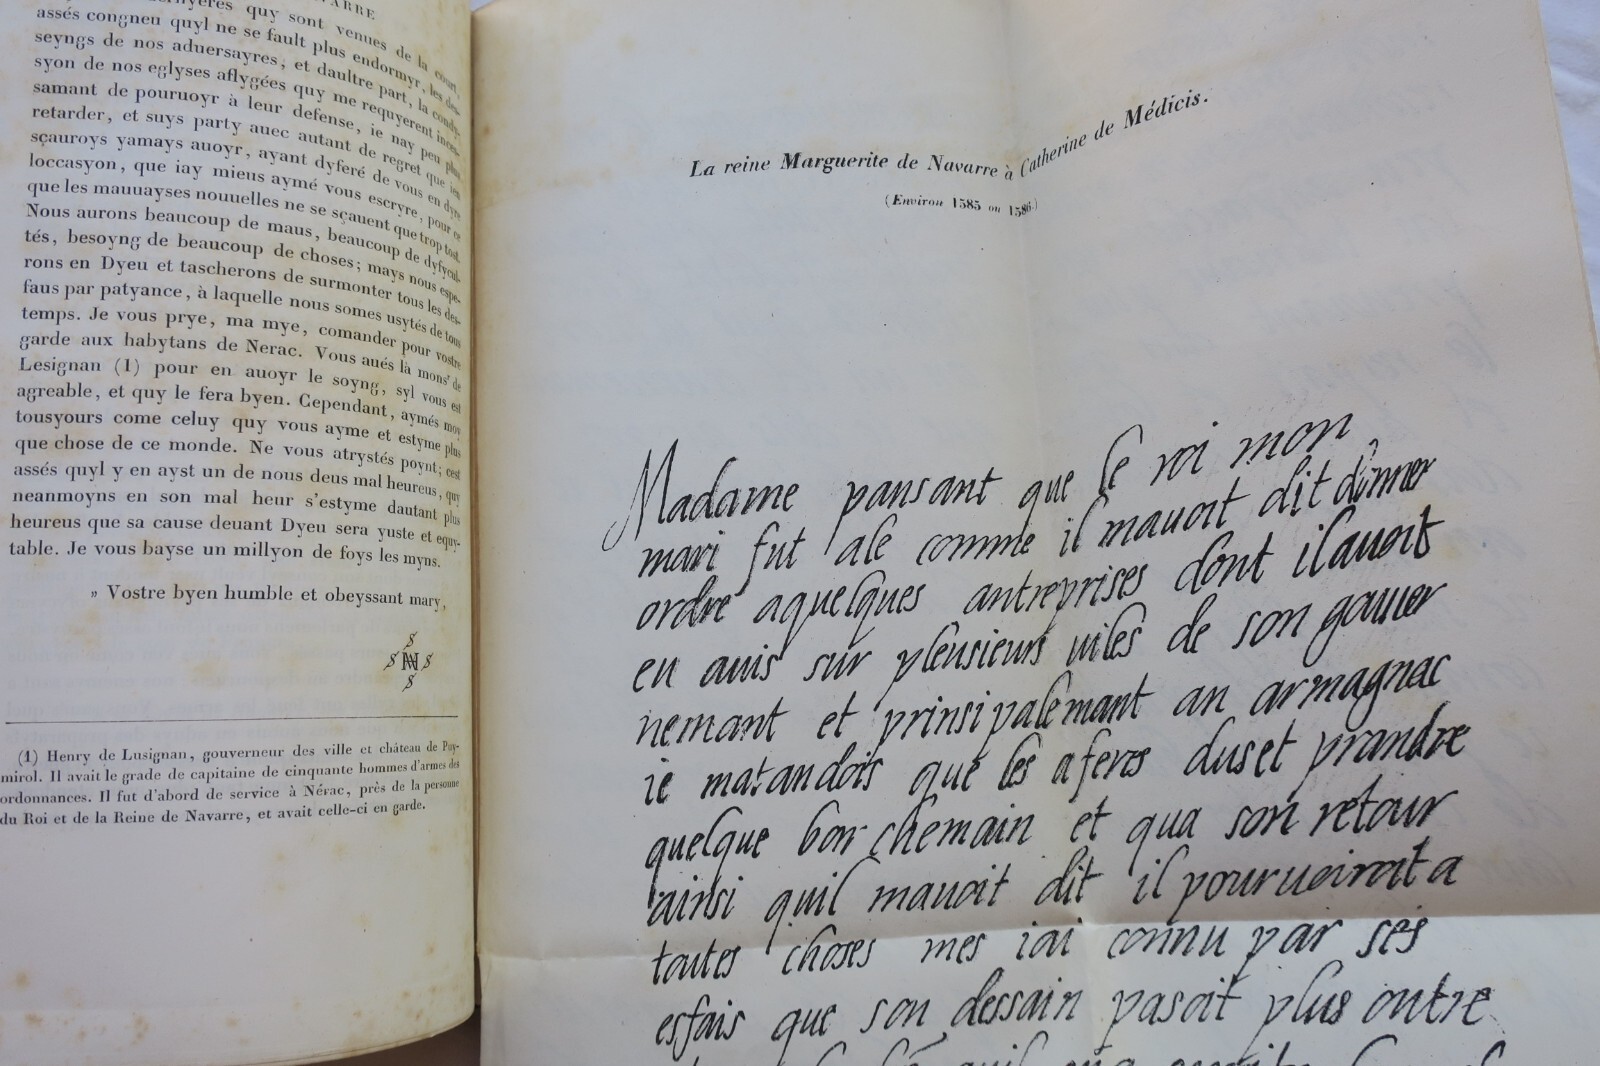 quy sont venues de la court,
assés congneu quyl ne se fault plus endormyr, les des-
seyngs de nos aduersayres, et daultre part, la condy-
syon de nos eglyses aflygées quy me requyerent inces-
samant de pouruoyr à leur defense, ie nay peu plus
retarder, et suys party auec autant de regret que ien
sçauroys yamays auoyr, ayant dyferé de vous en dyre
loccasyon, que iay mieus aymé vous escryre, pour ce
que les mauuayses nouuelles ne se sçauent que trop tost.
Nous aurons beaucoup de maus, beaucoup de dyfycul-
tés, besoyng de beaucoup de choses; mays nous espe-
rons en Dyeu et tascherons de surmonter tous les des-
faus par patyance, à laquelle nous somes usytés de tous
temps. Je vous prye, ma mye, comander pour vostre
garde aux habytans de Nerac. Vous aués là monsr de
Lesignan (1) pour en auoyr le soyng, syl vous est
agreable, et quy le fera byen. Cependant, aymés moy
tousyours come celuy quy vous ayme et estyme plus
que chose de ce monde. Ne vous atrystés poynt; cest
assés quyl y en ayst un de nous deus mal heureus, quy
neanmoyns en son mal heur s'estyme dautant plus
heureus que sa cause deuant Dyeu sera yuste et equy-
table. Je vous bayse un millyon de foys les myns.
» Vostre byen humble et obeyssant mary,
(1) Henry de Lusignan, gouverneur des ville et château de Puy-
mirol. Il avait le grade de capitaine de cinquante hommes d'armes des
ordonnances. Il fut d'abord de service à Nérac, près de la personne
du Roi et de la Reine de Navarre, et avait celle-ci en garde.
La reine Marguerite de Navarre à Catherine de Médicis.
(Environ 1585 ou 1586.)
Madame pansant que le roi mon
mari fut ale comme il mauoit dit donner
ordre aquelques antreprises dont ilauoit
eu auis sur plensieurs uiles de son gouuer
nemant et prinsipalemant an armagnac
ie matandois que les aferes duset prandre
quelque bon chemain et qua son retour
ainsi quil mauoit dit il pourueiroit a
toutes choses mes iai connu par ses
esfais que son dessain pasoit plus outre